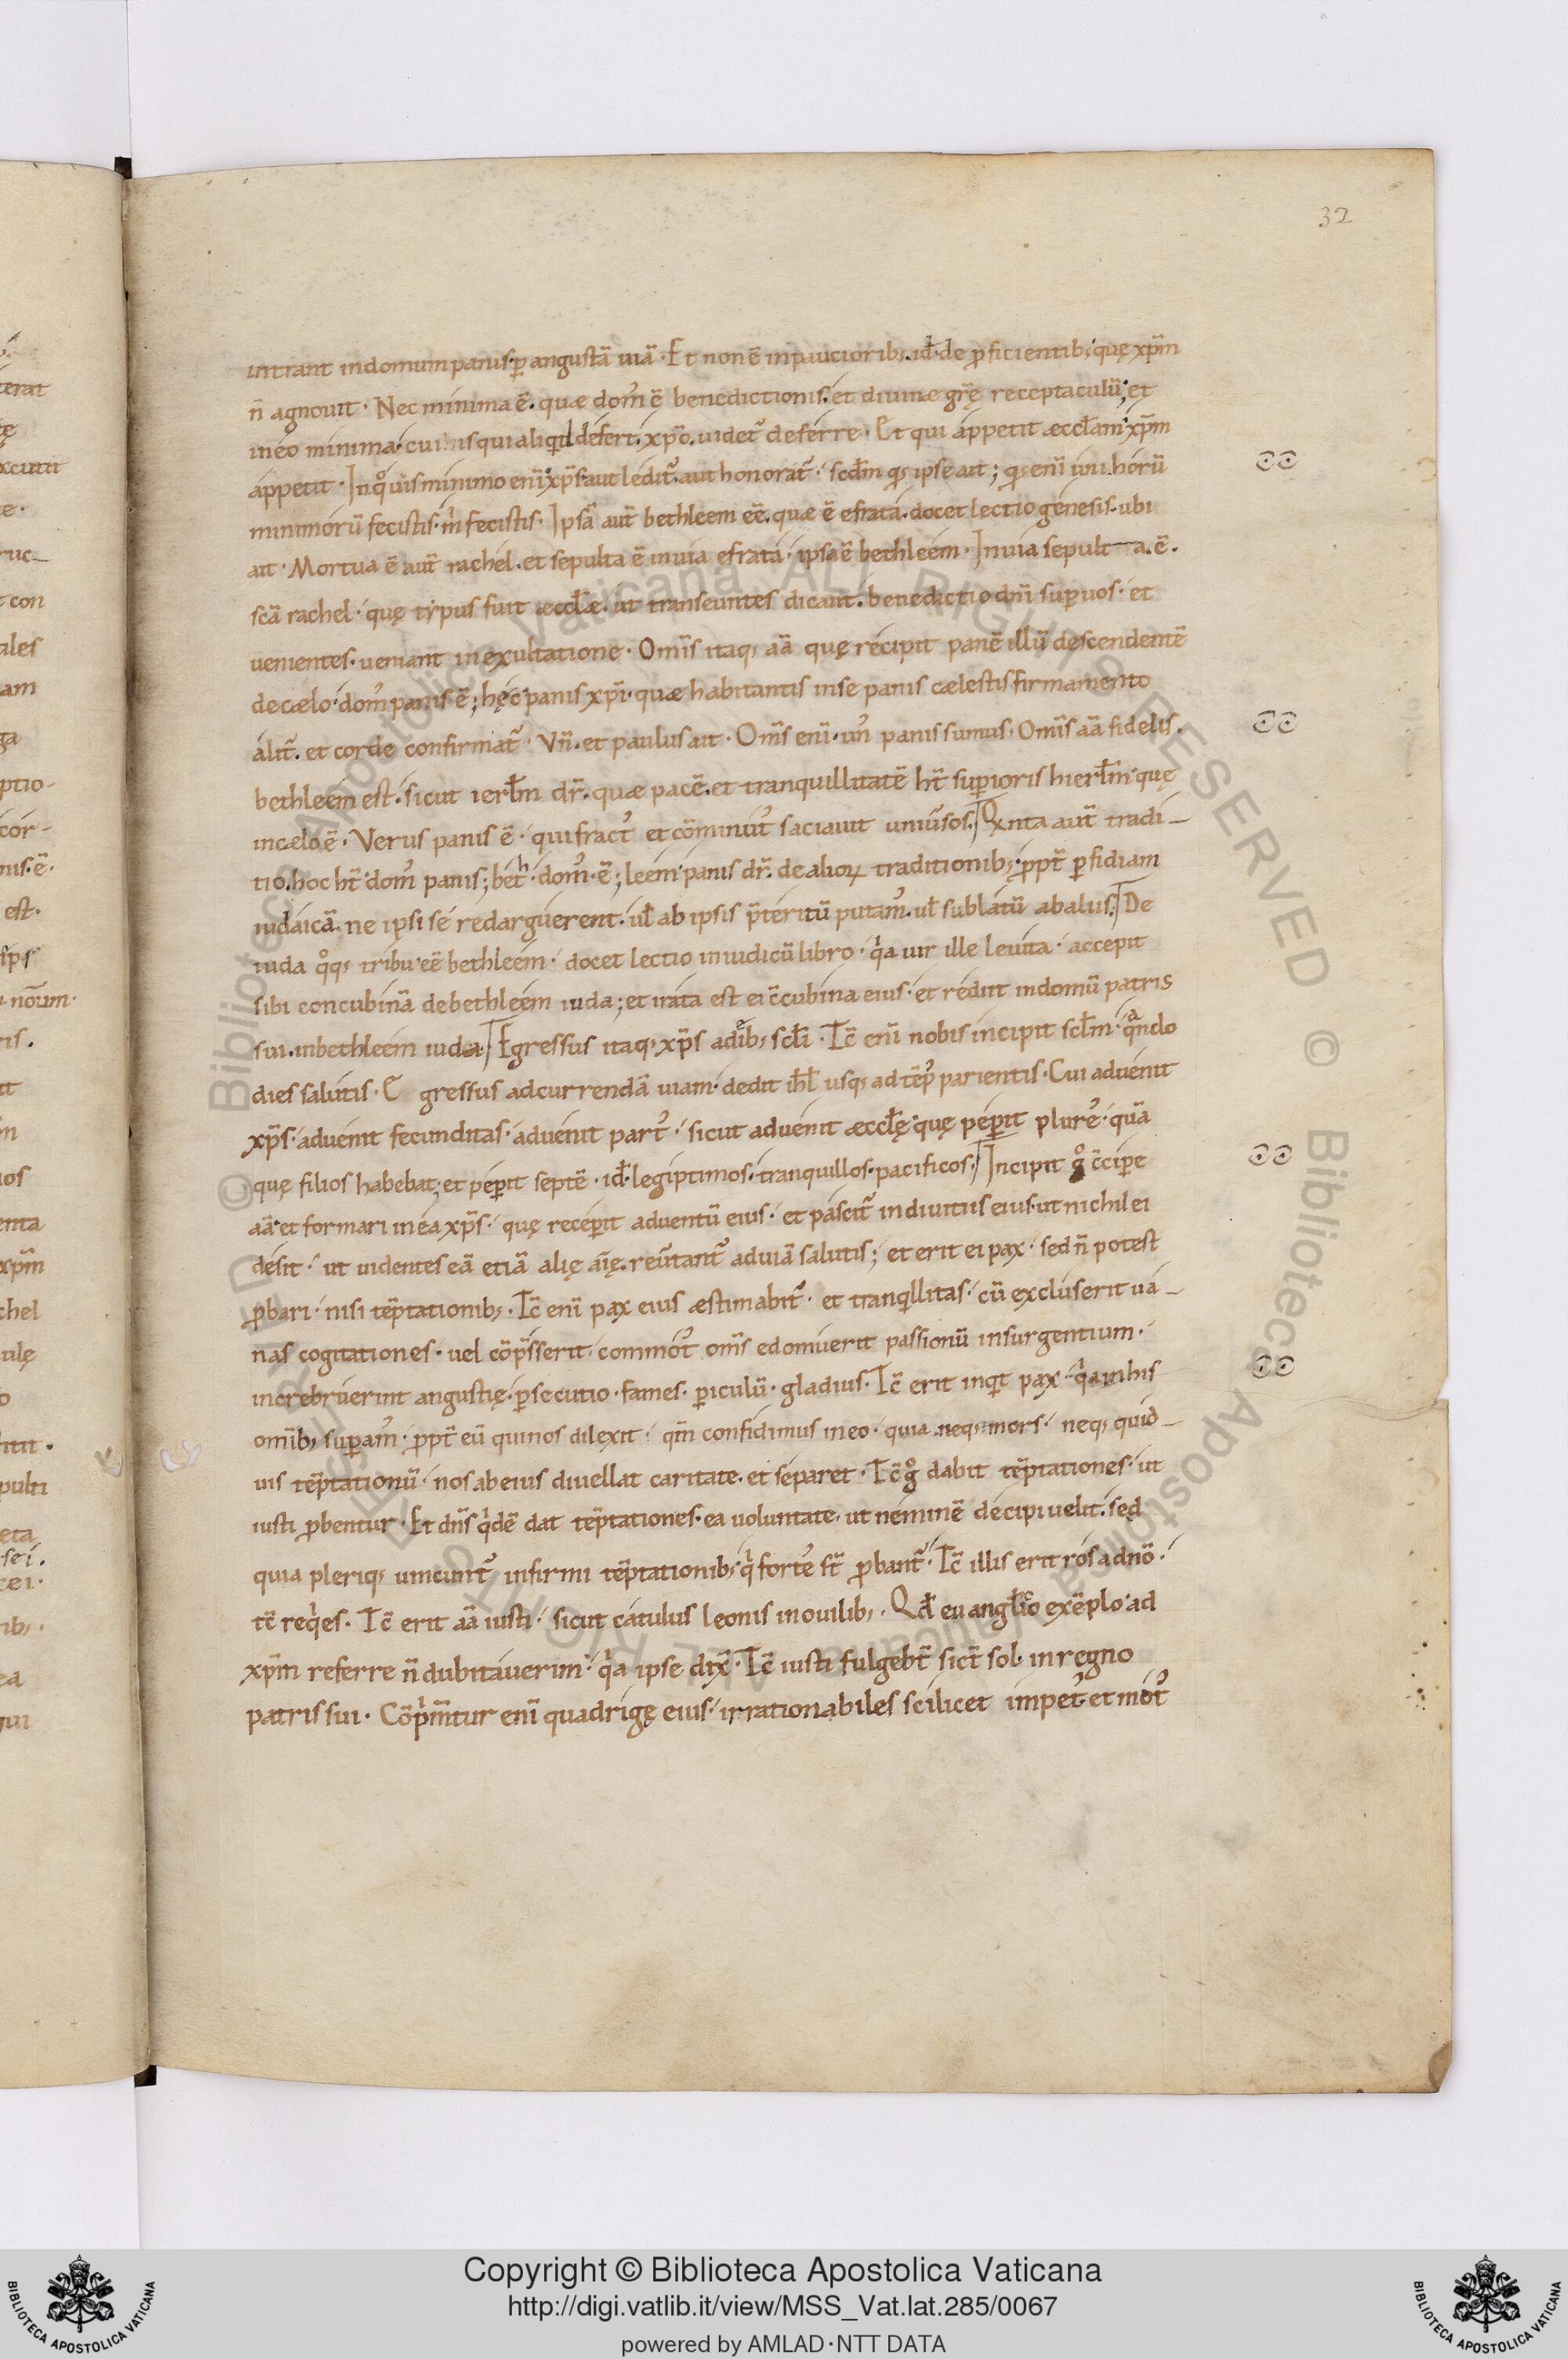 32
intrant indomumpanis·p̱ angustā uiā· Et non ē inpaucioribꝫ· id̄· de p̱ficientibꝫ· quę xp̄m
n̄ agnouit· Nec minima ē· quæ dom᷒ ē benedictionis· et diuinæ gr̄ę receptaculū; et
in eo minima· cui qui aliqđ defert· xp̄o· uidet᷑ deferre· Et qui appetit æccl̄am· xp̄m
appetit· In qͦuis minimo enī xp̄s aut ledit᷑· aut honorat᷑· scd̄m qͩ ipse ait; qͩ enī uni horū
minimorū fecistis· m̍ fecistis· Ipsā aut̄ bethleem eē· quæ ē efrata· docet lectio genesis· ubi
ait· Mortua ē aut̄ rachel· et sepulta ē inuia efrata· ipsa ē bethleem· Inuia sepult a· ē·
sc̄a rachel· quę typus fuit æccl̄æ· ut transeuntes dicant· benedictio dn̄i sup̱uos· et
uenientes· ueniant inexultatione· Om̄is itaqꝫ aā quę recipit panē illū descendentē
decælo· dom᷒ panis ē; hęc panis xp̄i· quæ habitantis inse panis cælestis firmamento
alit᷑· et corde confirmat᷑· Vn̄· et paulus ait· Om̄s enī· un᷒ panis sumus· Om̄is aā fidelis·
bethleem est· sicut ierl̄m dr̄· quæ pacē· et tranquillitatē ht̄ sup̱ioris hierl̄m· quę
incælo ē· Verus panis ē· qui fract᷒ et cōminut᷒ saciauit uniũsos· Qͣnta aut̄ traditio-
tio· hoc ht̄· dom᷒ panis; beth· dom᷒· ē; leem· panis dr̄· de alioꝝ traditionibꝫ· ꝓpt̄ p̱fidiam
iudaicā· ne ipsi se redarguerent· ul̄ ab ipsis p̄teritū putam᷒· ul̄ sublatū abaliis· De
iuda qͦqꝫ tribu· eē bethleem· docet lectio iniudicū libro· qͣa uir ille leuita· accepit
sibi concubinā debethleem iuda; et irata est ei c̄cubina eius· et rediit indomū patris
sui· inbethleem iuda· Egressus itaqꝫ xp̄s adiebꝫ scl̄i· Tc̄ enī nobis incipit scl̄m· qͣndo
dies salutis· E gressus adcurrendā uiam· dedit ihl̄ usqꝫ ad tēp᷒ parientis· Cui aduenit
xp̄s· aduenit fecunditas· aduenit part᷒· sicut aduenit æccl̄ę· quę pep̱it plure᷒· quā
quę filios habebat; et pep̱it septē· id̄· legiptimos· tranquillos· pacificos· Incipit gͦ c̄cip̱e
aā· et formari inea xp̄s· quę recep̱it aduentū eius· et pascit᷑ indiuitiis eius· ut nichil ei
desit· ut uidentes eā etiā alię aīę· reũtant᷑ aduiā salutis; et erit ei pax· sed n̄ potest
ꝓbari· nisi tēptationibꝫ· Tc̄ enī pax eius æstimabit᷑· et tranqͥllitas· cū excluserit ua-
nas cogitationes· uel cōp̄sserit· commot᷒ om̄s edomuerit passionū insurgentium·
increbruerint angustię· p̱secutio· fames· p̱iculū· gladius· Tc̄ erit inqͥt pax· qͣa inhis
omībꝫ sup̱am᷒· ꝓpt̄ eū qui nos dilexit· qm̄ confidimus in eo· quia neqꝫ mors· neqꝫ quid-
uis tēptationū· nos ab eius diuellat caritate· et separet· Tc̄ gͦ dabit tēptationes· ut
iusti ꝓbentur· Et dn̄s qͥdē dat tēptationes· ea uoluntate· ut neminē decipi uelit· sed
quia pleriqꝫ uincunt᷑ infirmi tēptationibꝫ· qͥ forte᷒ st̄ ꝓbant᷑· Tc̄ illis erit ros adn̄o·
tc̄ reqͥes· Tc̄ erit aā iusti· sicut catulus leonis inouilibꝫ· Qd̄ euangl̄ico exēplo· ad
xp̄m referre n̄ dubitauerim᷒· qͣa ipse dix̄· Tc̄ iusti fulgebt̄ sict̄ sol· inregno
patris sui· Cōpͥm̄tur enī quadrigę eius· irrationabiles scilicet impet᷒· et mot᷒
Copyright © Biblioteca Apostolica Vaticana
http://digi.vatlib.it/view/MSS_Vat.lat.285/0067
powered by AMLAD·NTT DATA